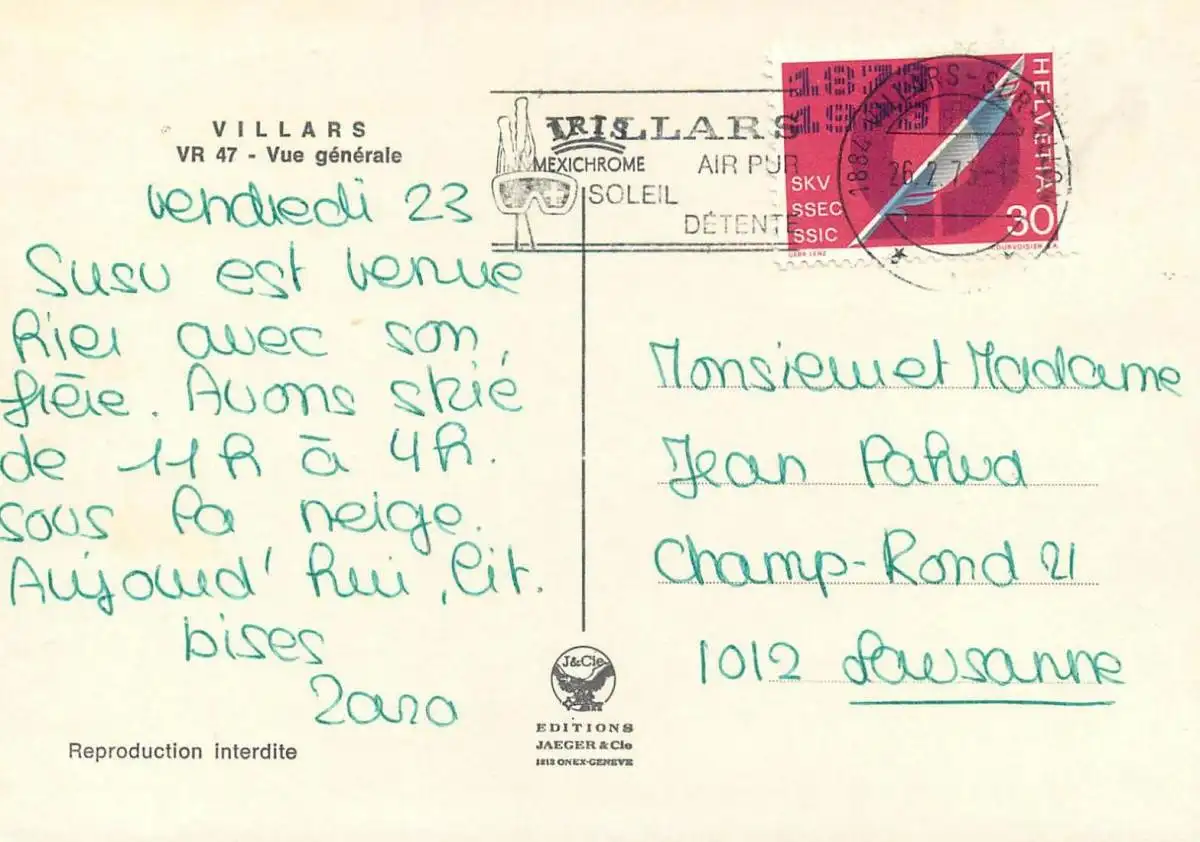 VILLARS
VR 47 - Vue générale
vendredi 23
Susu est venue
hier avec son
frère. Avons skié
de 11h à 4h.
sous la neige.
Aujourd'hui, lit.
bises
Zara
Reproduction interdite
IRIS
MEXICHROME
VILLARS
AIR PUR
SOLEIL
DÉTENTE
J&Cie
EDITIONS
JAEGER & Cie
1213 ONEX-GENEVE
1873
1973
HELVETIA
SKV
SSEC
SSIC
30
GEBR LENZ
COURVOISIER S.A.
1884 VILLARS-SUR-
26.2.73
Monsieur et Madame
Jean Pahud
Champ-Rond 21
1012 Lausanne